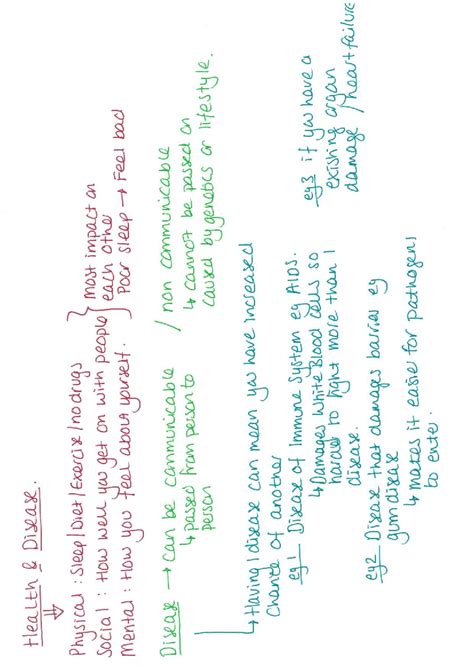 Health & Disease.
⇓
Physical : Sleep / Diet / Exercise / no drugs
Social : How well you get on with people
Mental : How you feel about yourself.
} most impact on
each other
Poor sleep → Feel bad
Disease → can be communicable
↳ passed from person to
person
/ non communicable
↳ cannot be passed on
caused by genetics or lifestyle.
↳ Having 1 disease can mean you have increased
chance of another
eg 1 Disease of Immune System eg AIDS.
↳ Damages White Blood cells so
harder to fight more than 1
disease.
eg2 Disease that damages barries eg
gum disease
↳ makes it easier for pathogens
to enter.
eg3 if you have a
exishing organ
damage / heart failure